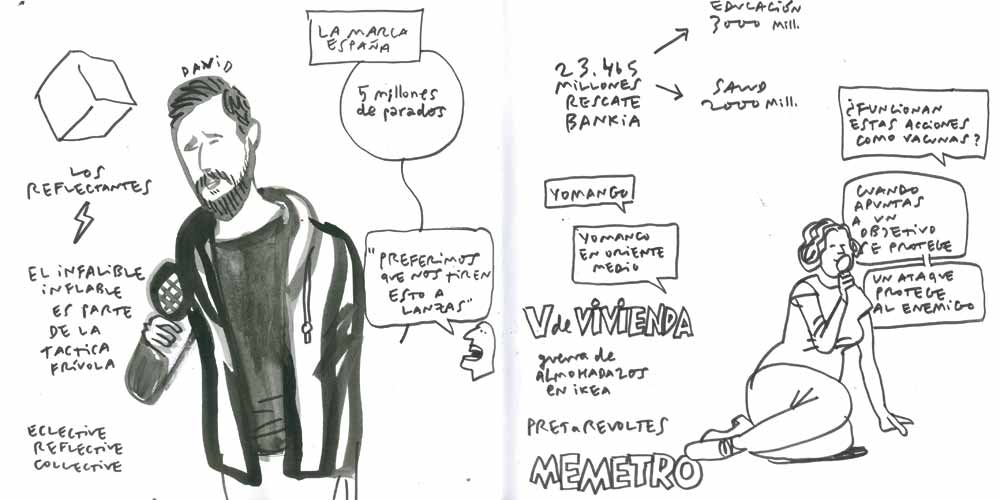 DAVID
LOS
REFLECTANTES
EL INFALIBLE
INFLABLE
ES PARTE
DE LA
TACTICA
FRÍVOLA
ECLECTIVE
REFLECTIVE
COLLECTIVE
LA MARCA
ESPAÑA
5 millones
de parados
"PREFERIMOS
QUE NOS TIREN
ESTO A
LANZAS"
EDUCACIÓN
3000 Mill.
23.465
MILLONES
RESCATE
BANKIA
SALUD
2000 Mill.
¿FUNCIONAN
ESTAS ACCIONES
COMO VACUNAS?
YOMANGO
YOMANGO
EN ORIENTE
MEDIO
CUANDO
APUNTAS
A UN
OBJETIVO
SE PROTEGE
UN ATAQUE
PROTEGE
AL ENEMIGO
V de VIVIENDA
guerra de
ALMOHADAZOS
EN IKEA
PRET a REVOLTES
MEMETRO